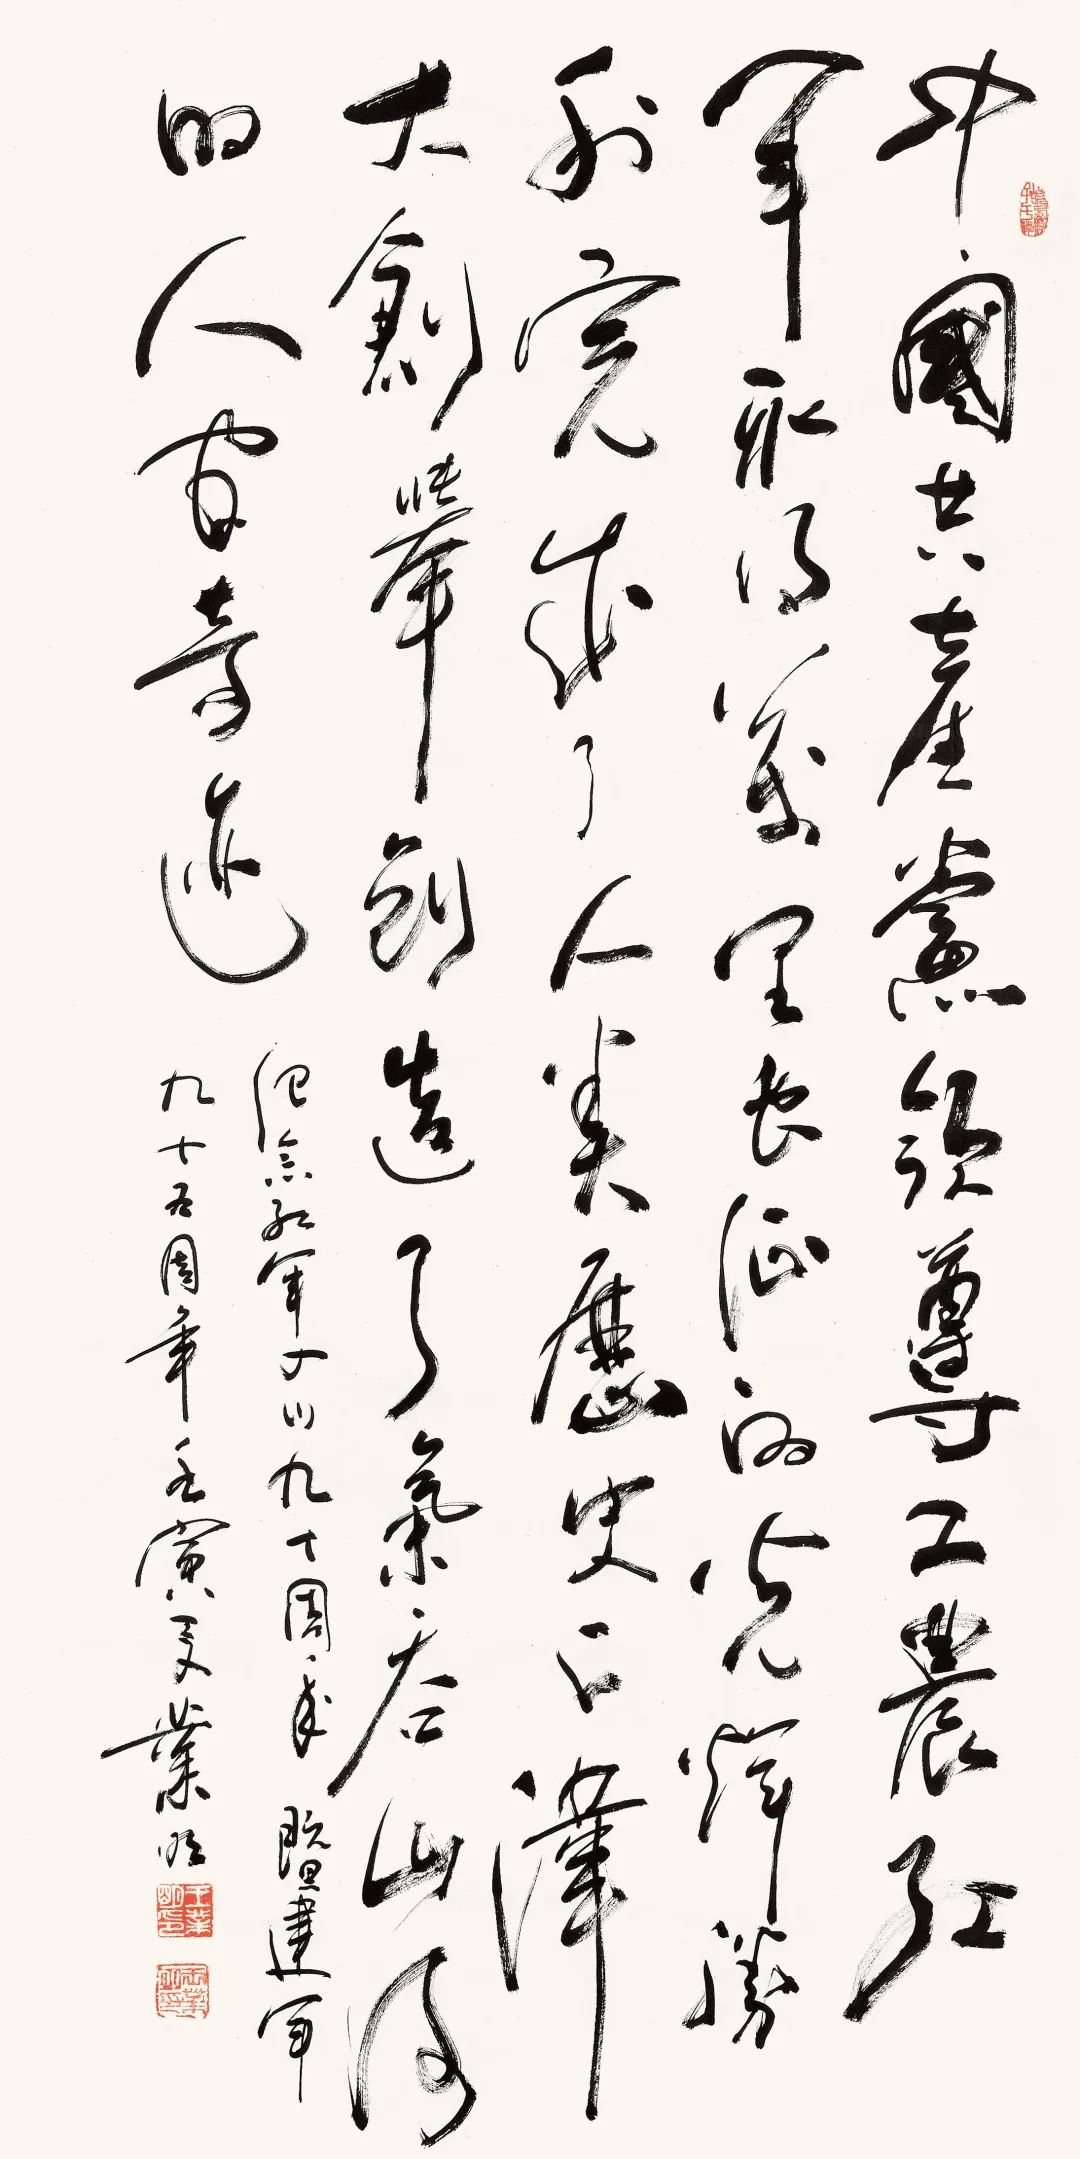 中國共產黨領導工農紅
軍取得萬里長征的光輝勝
利完成了人类歷史偉
大創舉創造了氣吞山河
的人間奇迹
紀念紅軍入川九十周年暨建軍
九十五周年壬寅夏業明